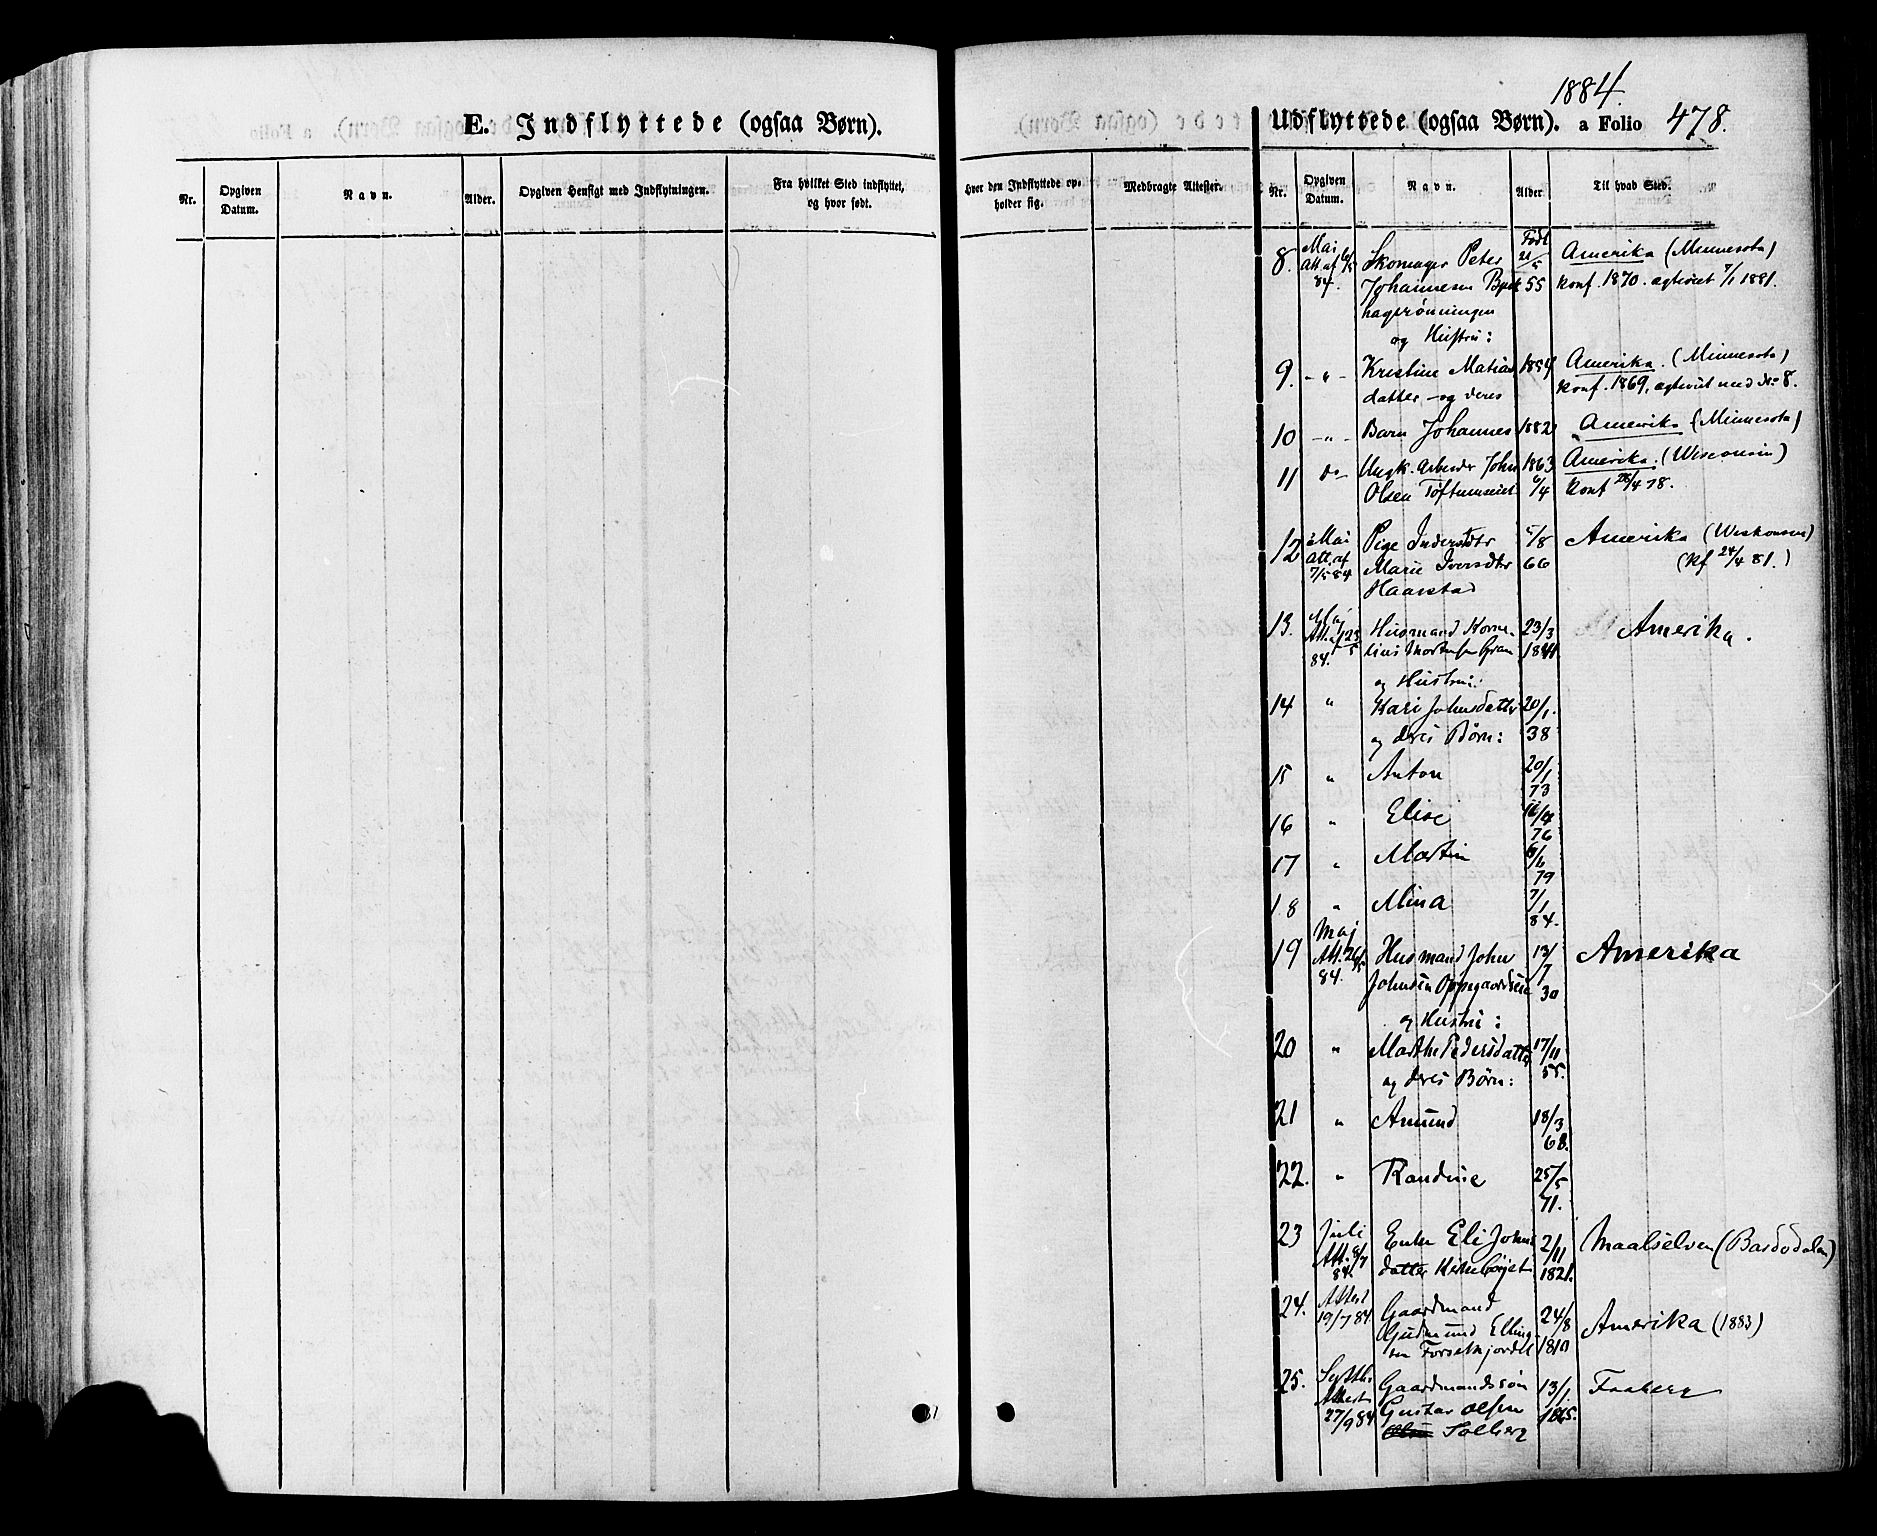 1884.
E. Indflyttede (ogsaa Børn).
Udflyttede (ogsaa Børn). a Folio 478.
Nr. Opgiven Datum. Navn. Alder. Opgiven Hensigt med Indflytningen. Fra hvilket Sted indflyttet, og hvor født. hvor den Indflyttede opholder sig. Medbragte Attester. Nr. Opgiven Datum. Navn. Alder Til hvad Sted.
8. Mai Skomager Peter Født Amerika (Minnesota)
Att. af 6/5 84. Johannesen 21/5 55 konf. 1870. agteviet 7/1 1881.
hagrønningen
og Hustru:
9. - " - Kristine Matias 1854 Amerika. (Minnesota)
datter - og deres konf. 1869, agteviet med No 8.
10 - " - Barn Johannes 1882 Amerika (Minnesota)
11 do Ungk. Arbeider John 1863 Amerika. (Wisconsin)
Olsen Toftumseiet 6/4 konf 28/4 78.
12 Mai Pige 5/8 Amerika (Weskonsin)
Att. af Marie Iversdtr 66 (kf 24/4 81.)
7/5 84 Haarstad
13. Maj Husmand Korne- 23/3 Amerika.
Att. af 23/5 lius Mortensen Gran
84. og Hustru:
14 " Kari Johnsdatter 20/1.
og deres Børn: 38
15 " Anton 20/1 73
16 " Elise 16/4 76
17 " Martin 79
18 " Mina 7/1 84.
Maj
19 Att. 26/5 Husmand John 13/7 Amerika
84. Johnsen Oppegaardseie 30
og Hustru:
20 " Marthe Pedersdatter 17/11
og deres Børn: 55.
21 " Amund 18/3 68.
22. " Randine 25/5 71.
23 Juli Enke Eli Johns 2/11 Maalselven (Bardodalen)
Att. 8/7 84. datter Kirkebøeiet 1821.
24. Attest Gaardmand 24/8 Amerika (1883)
19/7 84 Gudmund Elling- 1810
sen
25. Septbr. Gaardmandssøn 13/1 Faaberg
Attest Gustav Olsen 1865.
27/9 84 Solberg